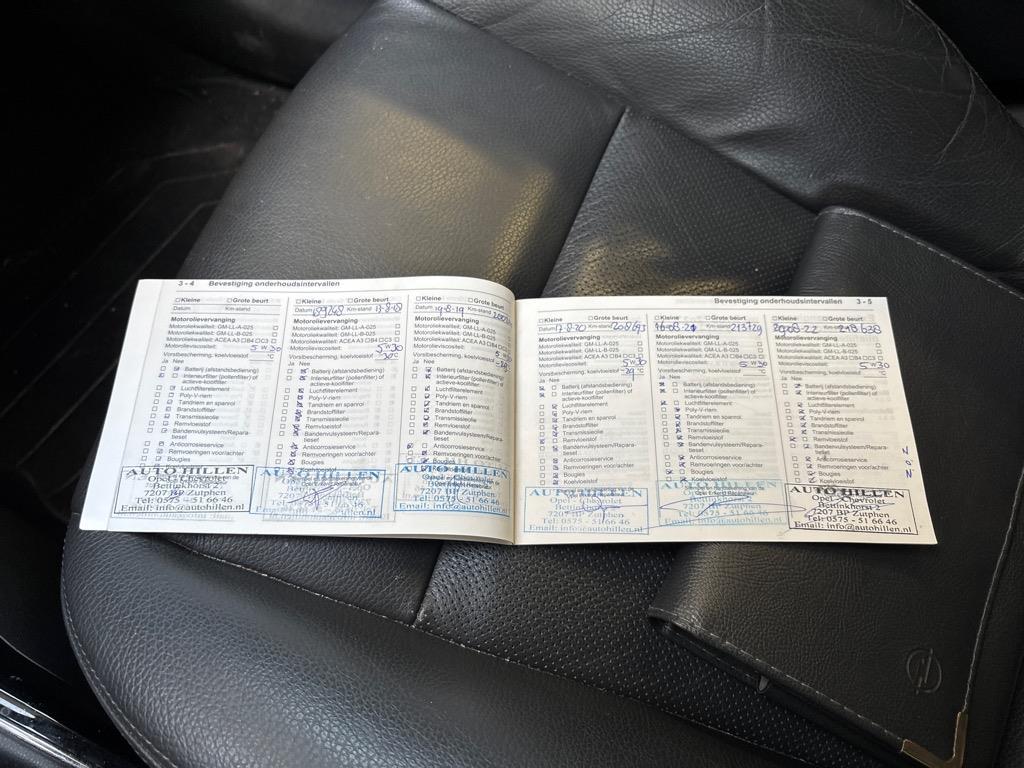 3 - 4 Bevestiging onderhoudsintervallen
☐Kleine ☐Grote beurt
Datum Km-stand
Motorolievervanging
Motoroliekwaliteit: GM-LL-A-025 ☐
Motoroliekwaliteit: GM-LL-B-025 ☐
Motoroliekwaliteit: ACEA A3 ☐B4 ☐C3 ☐
Motorolieviscositeit: 5W30
Vorstbescherming, koelvloeistof °C
Ja Nee
Batterij (afstandsbediening)
Interieurfilter (pollenfilter) of
actieve-koolfilter
Luchtfilterelement
Poly-V-riem
Tandriem en spanrol
Brandstoffilter
Transmissieolie
Remvloeistof
Bandenvulsysteem/Repara-
tieset
Anticorrosieservice
Remvoeringen voor/achter
Bougies
AUTO HILLEN
Opel - Chevrolet
Bettinkhorst 2
7207 BP Zutphen
Tel: 0575 - 51 66 46
Email: info@autohillen.nl
☐Kleine ☐Grote beurt
Km-stand 13-8-18
Motorolievervanging
Motoroliekwaliteit: GM-LL-A-025 ☐
Motoroliekwaliteit: GM-LL-B-025 ☐
Motoroliekwaliteit: ACEA A3 ☐B4 ☐C3 ☐
Motorolieviscositeit: 5W30
Vorstbescherming, koelvloeistof -30°C
Ja Nee
Batterij (afstandsbediening)
Interieurfilter (pollenfilter) of
actieve-koolfilter
Luchtfilterelement
Poly-V-riem
Tandriem en spanrol
Brandstoffilter
Transmissieolie
Remvloeistof
Bandenvulsysteem/Repara-
tieset
Anticorrosieservice
Remvoeringen voor/achter
Bougies
AUTO HILLEN
7207 BP Zutphen
Tel: 0575 - 51 66 46
Email: info@autohillen.nl
☐Kleine ☐Grote beurt
Datum 14-8-19 Km-stand
Motorolievervanging
Motoroliekwaliteit: GM-LL-A-025
Motoroliekwaliteit: GM-LL-B-025
Motoroliekwaliteit: ACEA A3 ☐B4 ☐C3
Motorolieviscositeit: 5W30
Vorstbescherming, koelvloeistof
Ja Nee
Batterij (afstandsbediening)
Interieurfilter (pollenfilter) of
actieve-koolfilter
Luchtfilterelement
Poly-V-riem
Tandriem en spanrol
Brandstoffilter
Transmissieolie
Remvloeistof
Bandenvulsysteem/Repara-
tieset
Anticorrosieservice
Remvoeringen voor/achter
Bougies
AUTO HILLEN
7207 BP Zutphen
Tel: 0575 - 51 66 46
Email: info@autohillen.nl
Bevestiging onderhoudsintervallen 3 - 5
☐Kleine ☐Grote beurt
Datum 17-8-20 Km-stand 208693
Motorolievervanging
Motoroliekwaliteit: GM-LL-A-025 ☐
Motoroliekwaliteit: GM-LL-B-025 ☐
Motoroliekwaliteit: ACEA A3 ☐B4 ☐C3 ☐
Motorolieviscositeit: 5W30
Vorstbescherming, koelvloeistof °C
Ja Nee
Batterij (afstandsbediening)
Interieurfilter (pollenfilter) of
actieve-koolfilter
Luchtfilterelement
Poly-V-riem
Tandriem en spanrol
Brandstoffilter
Transmissieolie
Remvloeistof
Bandenvulsysteem/Repara-
tieset
Anticorrosieservice
Remvoeringen voor/achter
Bougies
Koelvloeistof
AUTO HILLEN
Opel - Chevrolet
Bettinkhorst 2
7207 BP Zutphen
Tel: 0575 - 51 66 46
Email: info@autohillen.nl
☐Kleine ☐Grote beurt
16-08-21 Km-stand 213729
Motorolievervanging
Motoroliekwaliteit: GM-LL-A-025 ☐
Motoroliekwaliteit: GM-LL-B-025 ☐
Motoroliekwaliteit: ACEA A3 ☐B4 ☐C3 ☐
Motorolieviscositeit: 5W30
Vorstbescherming, koelvloeistof °C
Ja Nee
Batterij (afstandsbediening)
Interieurfilter (pollenfilter) of
actieve-koolfilter
Luchtfilterelement
Poly-V-riem
Tandriem en spanrol
Brandstoffilter
Transmissieolie
Remvloeistof
Bandenvulsysteem/Repara-
tieset
Anticorrosieservice
Remvoeringen voor/achter
Bougies
Koelvloeistof
AUTO HILLEN
7207 BP Zutphen
Tel: 0575 - 51 66 46
Email: info@autohillen.nl
☐Kleine ☐Grote beurt
Km-stand 218638
Motorolievervanging
Motoroliekwaliteit: GM-LL-A-025 ☐
Motoroliekwaliteit: GM-LL-B-025 ☐
Motoroliekwaliteit: ACEA A3 ☐B4 ☐C3 ☐
Motorolieviscositeit: 5W30
Vorstbescherming, koelvloeistof °C
Ja Nee
Batterij (afstandsbediening)
Interieurfilter (pollenfilter) of
actieve-koolfilter
Luchtfilterelement
Poly-V-riem
Tandriem en spanrol
Brandstoffilter
Transmissieolie
Remvloeistof
Bandenvulsysteem/Repara-
tieset
Anticorrosieservice
Remvoeringen voor/achter
Bougies
Koelvloeistof
AUTO HILLEN
Opel - Chevrolet
Bettinkhorst 2
7207 BP Zutphen
Tel: 0575 - 51 66 46
Email: info@autohillen.nl